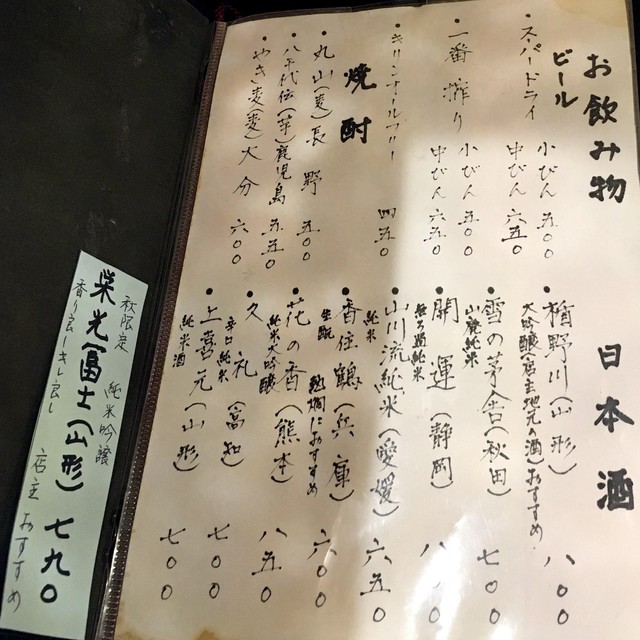 お飲み物
ビール
・スーパードライ 小びん 五〇〇
中びん 六五〇
・一番搾り 小びん 五〇〇
中びん 六五〇
・キリンオールフリー 四五〇
焼酎
・丸山(麦)長野 五〇〇
・八千代伝(芋)鹿児島 五五〇
・やき麦(麦)大分 六〇〇
日本酒
・楯野川(山形) 八〇〇
大吟醸(店主地元の酒)おすすめ
・雪の茅舎(秋田) 七〇〇
山廃純米
・開運(静岡) 八〇〇
無ろ過純米
・山川流純米(愛媛) 六五〇
純米
・香住鶴(兵庫) 六〇〇
生酛 熱燗におすすめ
・花の香(熊本) 八五〇
純米大吟醸
・久礼(高知) 七〇〇
辛口純米
・上喜元(山形) 七〇〇
純米酒
秋限定 純米吟醸
栄光冨士(山形) 七九〇
香り良しキレ良し 店主おすすめ